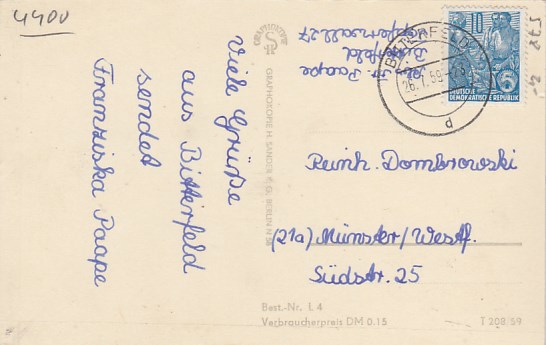 4400
Viele Grüße
aus Bitterfeld
sendet
Franziska Paape
GRAPHOKOPIE H. SANDER K.G., BERLIN N 58
Paape
BITTERFELD
26.7.59
d
10
DEUTSCHE
DEMOKRATISCHE REPUBLIK
Reinh. Dombrowski
(21a) Münster/Westf.
Südstr. 25
Best.-Nr. L 4
Verbraucherpreis DM 0.15
T 208/59